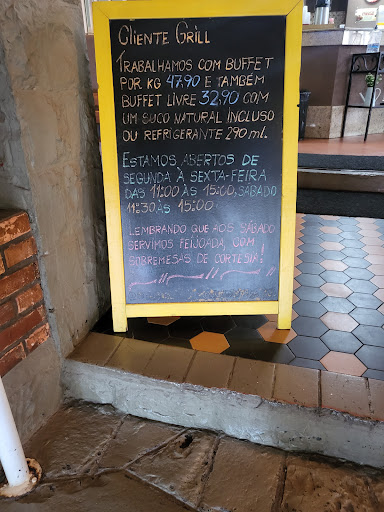 CLIENTE GRILL
TRABALHAMOS COM BUFFET
POR KG 47,90 E TAMBÉM
BUFFET LIVRE 32,90 COM
UM SUCO NATURAL INCLUSO
OU REFRIGERANTE 290 mL.
ESTAMOS ABERTOS DE
SEGUNDA À SEXTA-FEIRA
DAS 11:00 ÀS 15:00, SÁBADO
11:30 ÀS 15:00.
LEMBRANDO QUE AOS SÁBADO
SERVIMOS FEIJOADA, COM
SOBREMESAS DE CORTESIA!